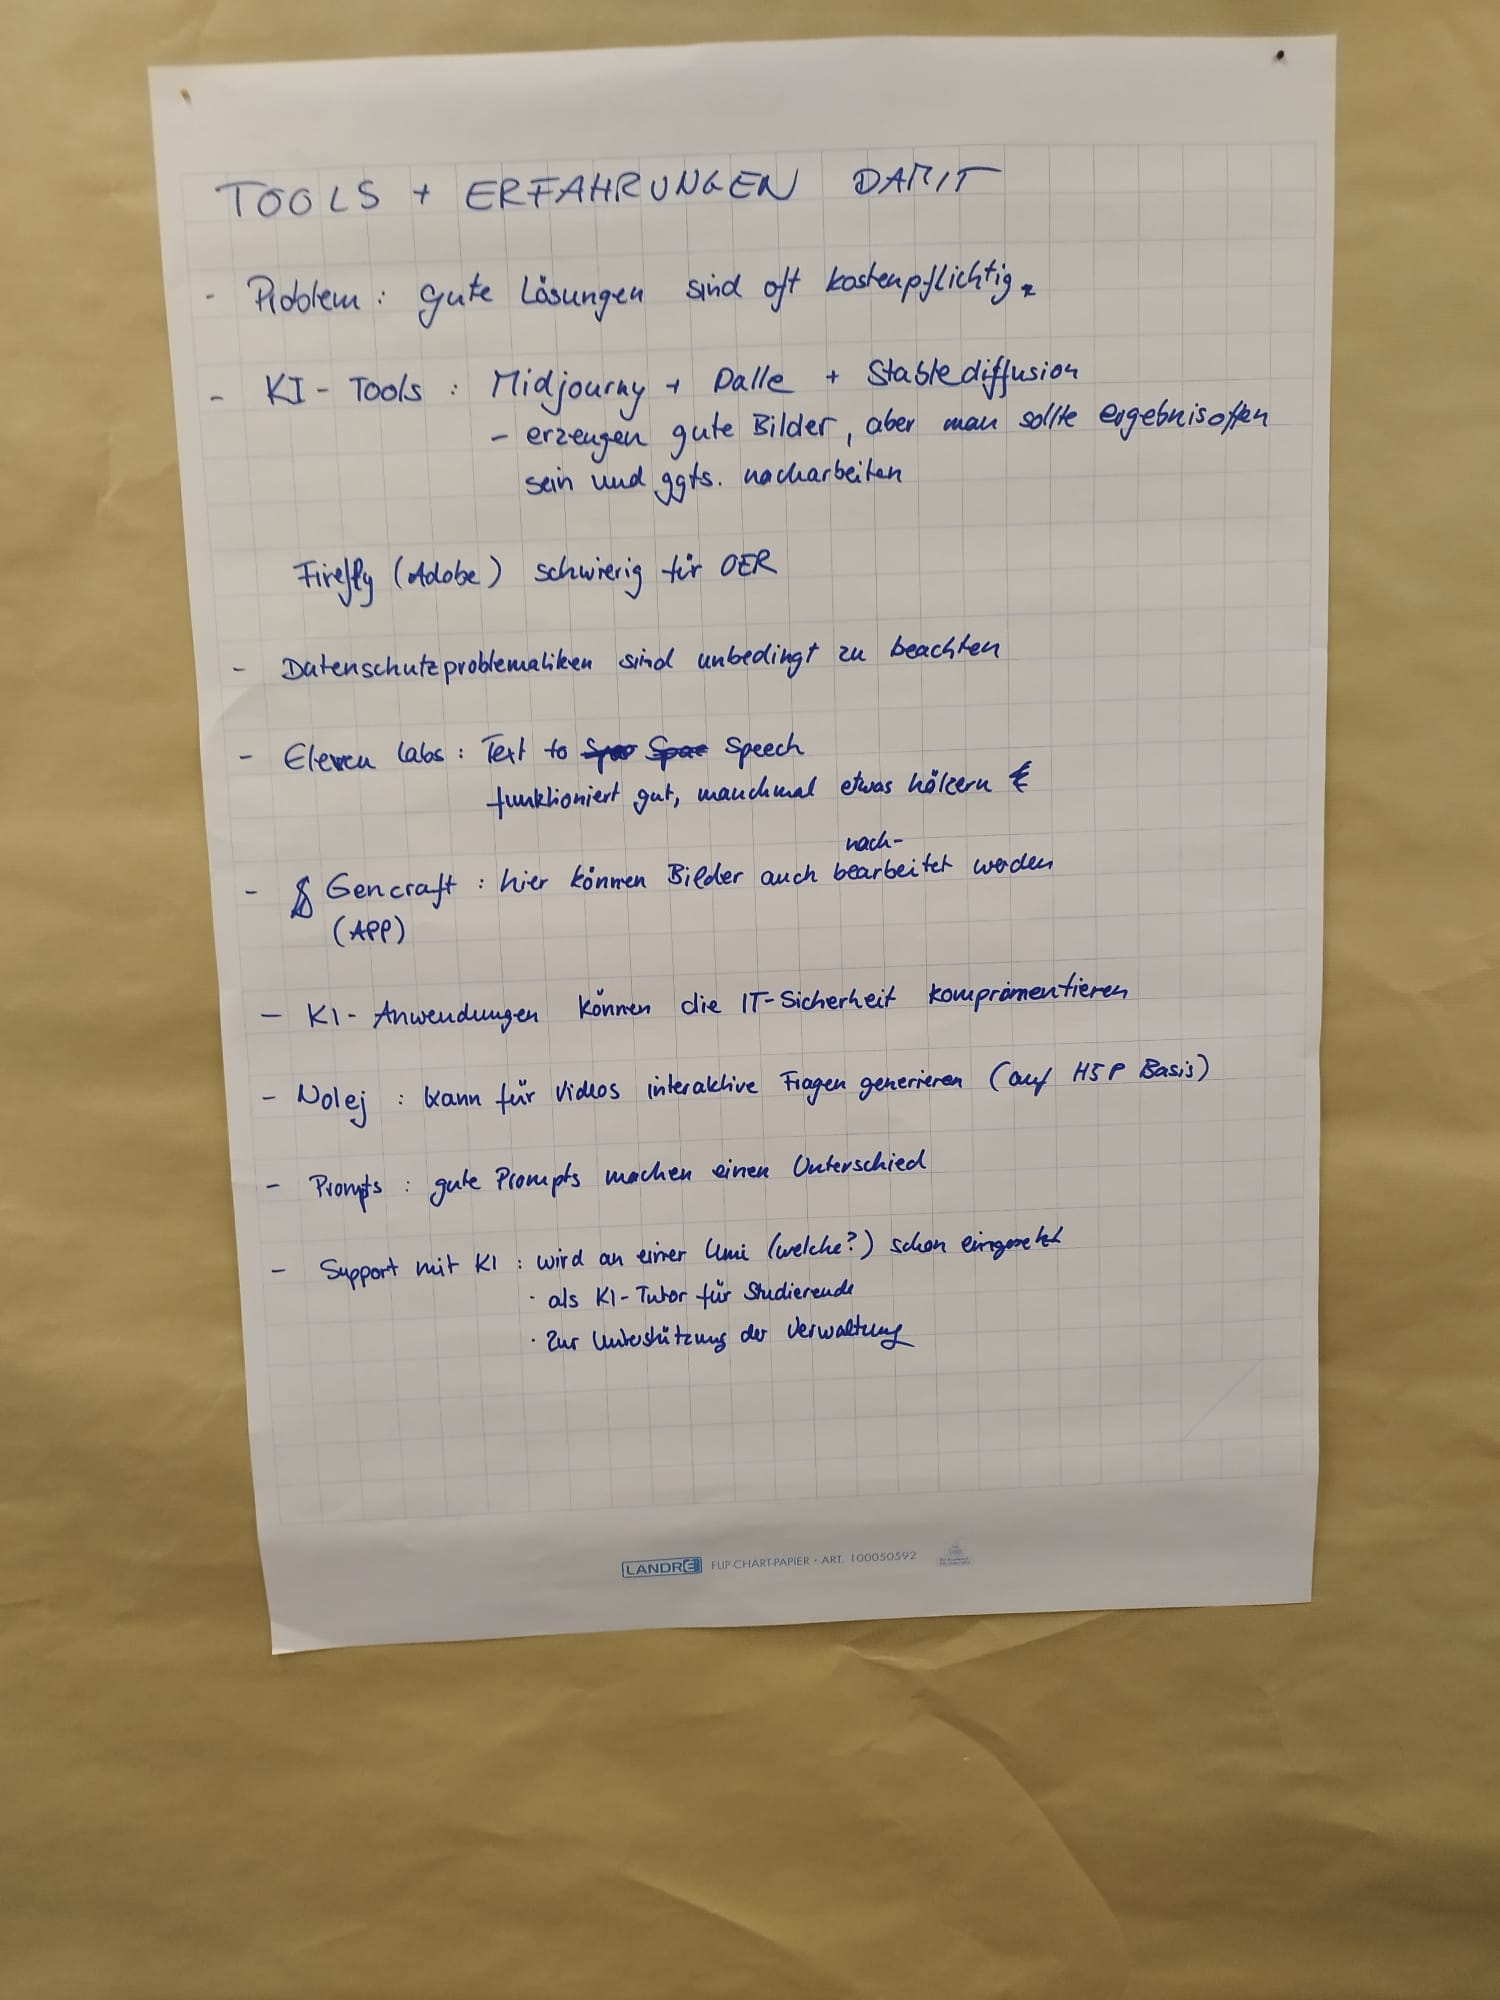 TOOLS + ERFAHRUNGEN DAMIT
- Problem: gute Lösungen sind oft kostenpflichtig.
- KI-Tools: Midjourny + Dalle + Stablediffusion
- erzeugen gute Bilder, aber man sollte ergebnisoffen
sein und ggfs. nacharbeiten
Firefly (Adobe) schwierig für OER
- Datenschutzproblematiken sind unbedingt zu beachten
- Eleven Labs: Text to Speech
funktioniert gut, manchmal etwas hölzern
nach-
- Gencraft: hier können Bilder auch bearbeitet werden
(APP)
- KI-Anwendungen können die IT-Sicherheit kompromentieren
- Nolej: kann für Videos interaktive Fragen generieren (auf H5P Basis)
- Prompts: gute Prompts machen einen Unterschied
- Support mit KI: wird an einer Uni (welche?) schon eingesetzt
· als KI-Tutor für Studierende
· Zur Unterstützung der Verwaltung
LANDRÉ FLIP-CHART-PAPIER · ART. 100050592